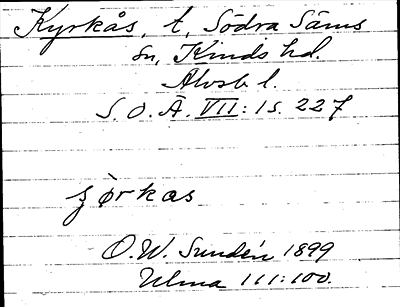 Kyrkås, t, Södra Säms
sn, Kinds hd.
Älvsb. l.
S. O. Ä. VII: 1 s. 227
çørkas
O. W. Sundén 1899
Ulma 111:100.